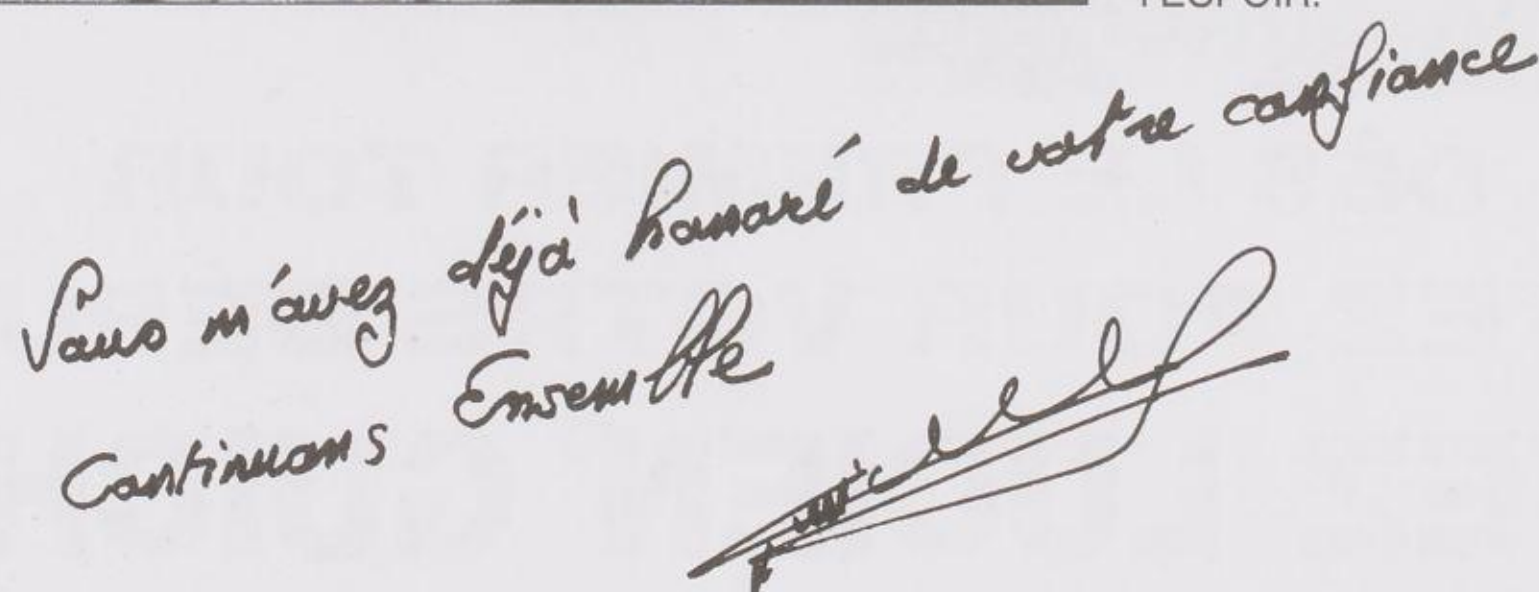 l'ESPOIR.
Vous m'avez déjà honoré de votre confiance
Continuons Ensemble